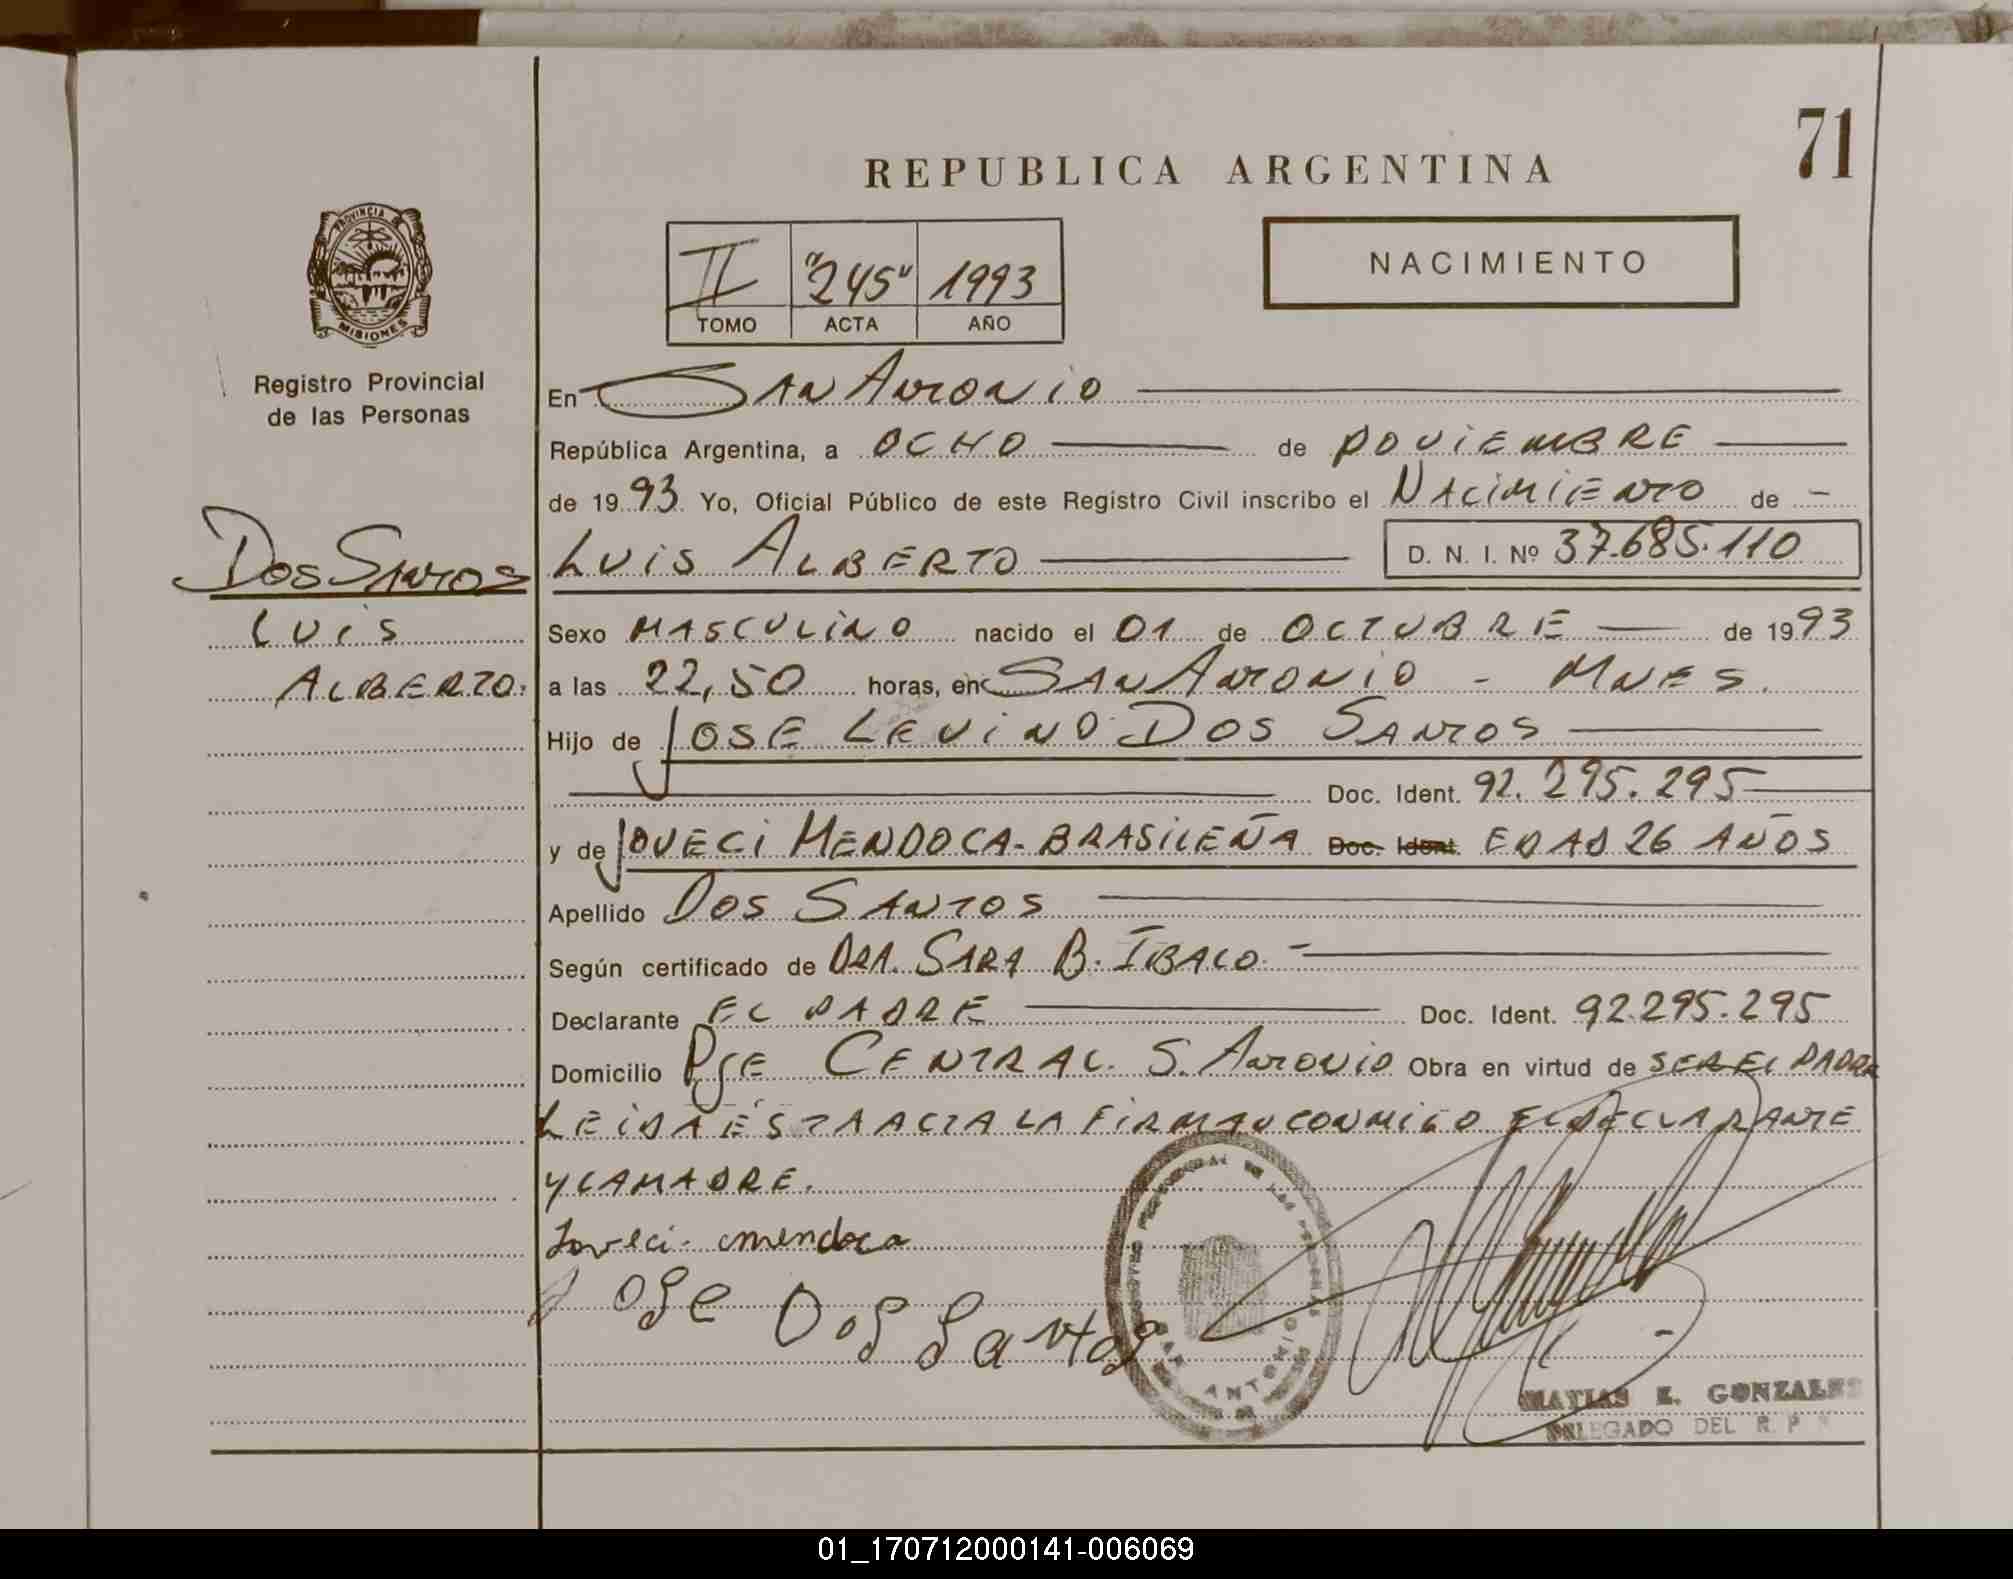 71
REPUBLICA ARGENTINA
PROVINCIA DE
MISIONES
Registro Provincial
de las Personas
II "245" 1993
TOMO ACTA AÑO
NACIMIENTO
En San Antonio
República Argentina, a OCHO de NOVIEMBRE
de 1993 Yo, Oficial Público de este Registro Civil inscribo el NACIMIENTO de -
Dos Santos
LUIS
ALBERTO.
LUIS ALBERTO D. N. I. Nº 37.685.110
Sexo MASCULINO nacido el 01 de OCTUBRE de 1993
a las 22,50 horas, en SAN ANTONIO - MNES.
Hijo de JOSE LEVINO DOS SANTOS
Doc. Ident. 92.295.295
y de JOVECI MENDOCA - BRASILEÑA Doc. Ident. EDAD 26 AÑOS
Apellido DOS SANTOS
Según certificado de DRA. SARA B. IBALO -
Declarante EL PADRE Doc. Ident. 92.295.295
Domicilio PJE CENTRAL. S. ANTONIO Obra en virtud de SER EL PADRE
LEIDA ESTA ACTA LA FIRMAN CONMIGO EL DECLARANTE
Y LA MADRE.
Joveci mendoca
Jose Dos Santos
SAN ANTONIO
MATIAS E. GONZALES
DELEGADO DEL R. P.
01_170712000141-006069